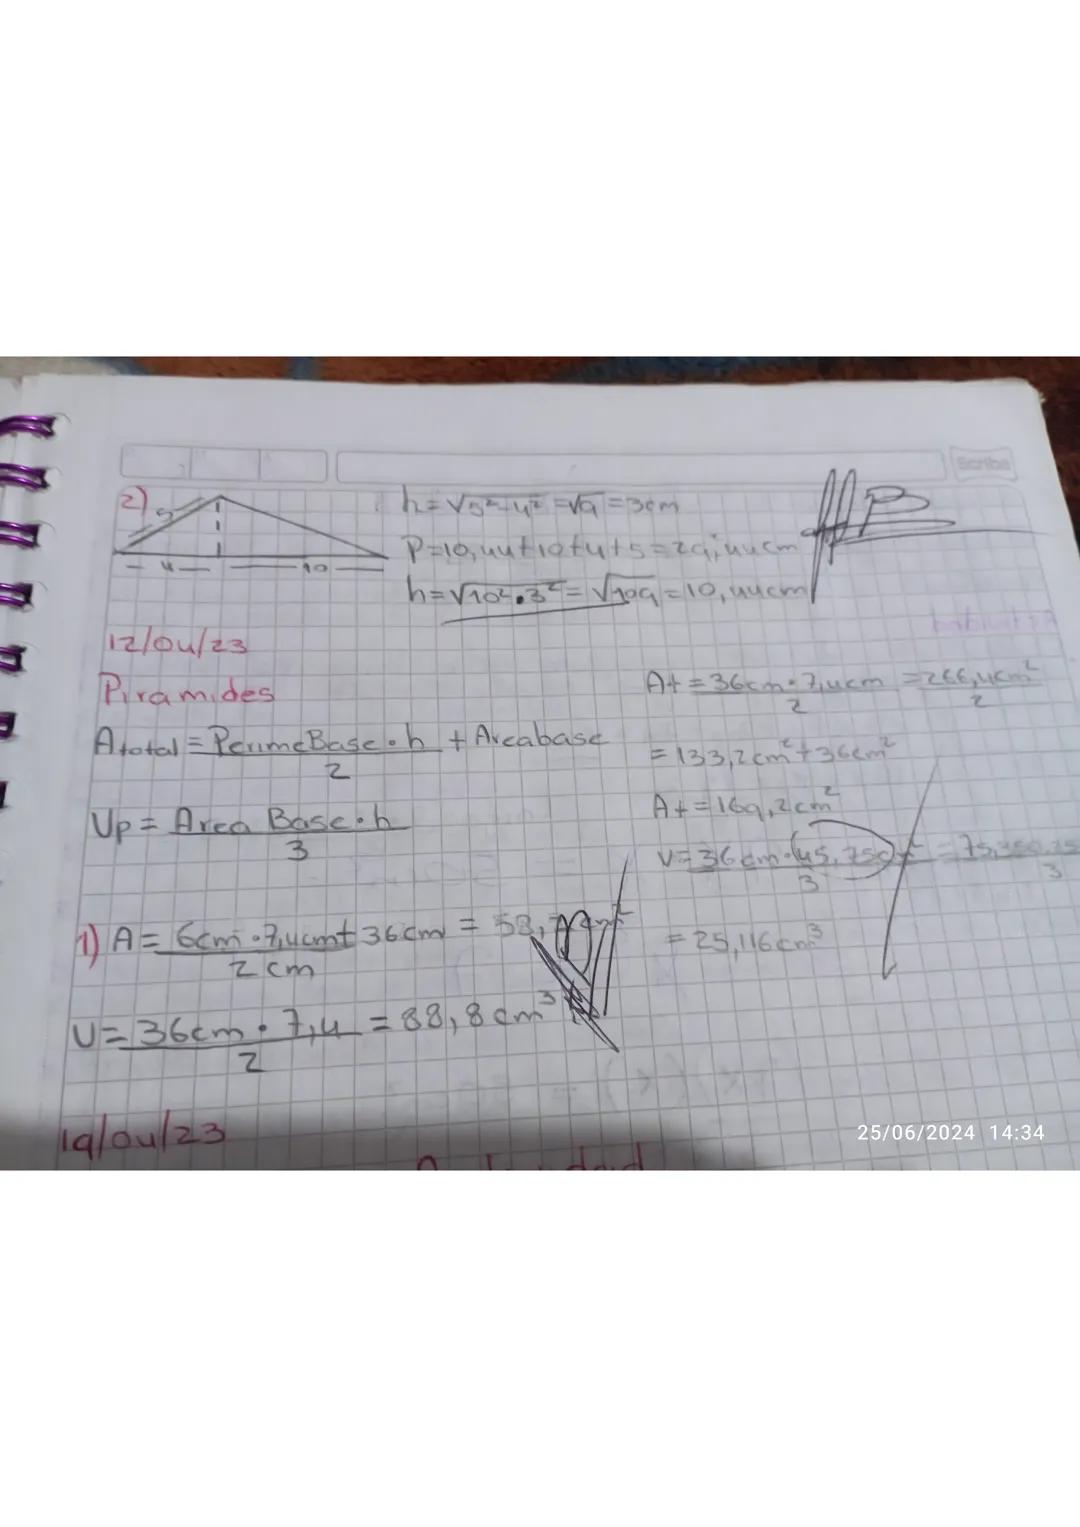 Scribe
2)
5
4
10
h=√5²-4² =√9 =3cm
P=10,44+10+4+5=29,44cm
h=√10².3²=√109=10,44cm
12/04/23
Piramides
Atotal = PerimeBase.h + Areabase
2
Vp = Area Base.h
3
1) A= 6cm.7,4cm+36cm = 58,
2cm
V= 36cm.7,4 = 88,8cm³
2
At = 36cm.7,4cm = 266,4cm²
2 2
= 133,2cm²+36cm²
At = 169,2cm²
V= 36cm.(45,75c
3 3
= 25,116cm³
19/04/23
25/06/2024 14:34